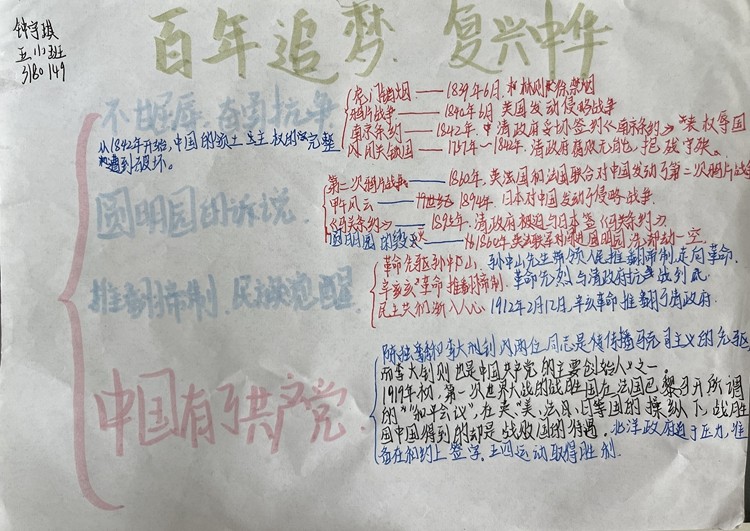 百年追梦 复兴中华
钟宇琪
五小班
3180149
不甘屈辱 奋勇抗争
从1842年开始,中国的领土主权的完整
遭到破坏。
虎门销烟——1839年6月,林则徐禁烟
鸦片战争——1840年6月 英国发动侵略战争
南京条约——1842年,中清政府签《南京条约》丧权辱国
闭关锁国——1757年~1842年,清政府腐败无能
圆明园的诉说
第二次鸦片战争——1860年,英法国和法国联合对中国发动了第二次鸦片战争
甲午风云——19世纪 1894年,日本对中国发动了侵略战争
《马关条约》——1895年,清政府被迫与日本签《马关条约》
圆明园的毁灭——1860年,英法联军对圆明园洗劫一空。
推翻帝制 民族觉醒
革命先驱孙中山 孙中山先生带领人民推翻帝制走向革命
辛亥革命推翻帝制 革命先烈与清政府抗争战到底
民主共和渐入人心 1912年2月12日,辛亥革命推翻了清政府
中国有了共产党
陈独秀和李大钊两位同志是传播马克思主义的先驱
而李大钊则也是中国共产党的主要创始人之一。
1919年初,第一次世界大战的战胜国在法国巴黎召开所谓
的“和平会议”,在英、美、法、日等国的操纵下,战胜
国中国得到的却是战败国的待遇。北洋政府迫于压力,准
备在和约上签字。五四运动取得胜利.